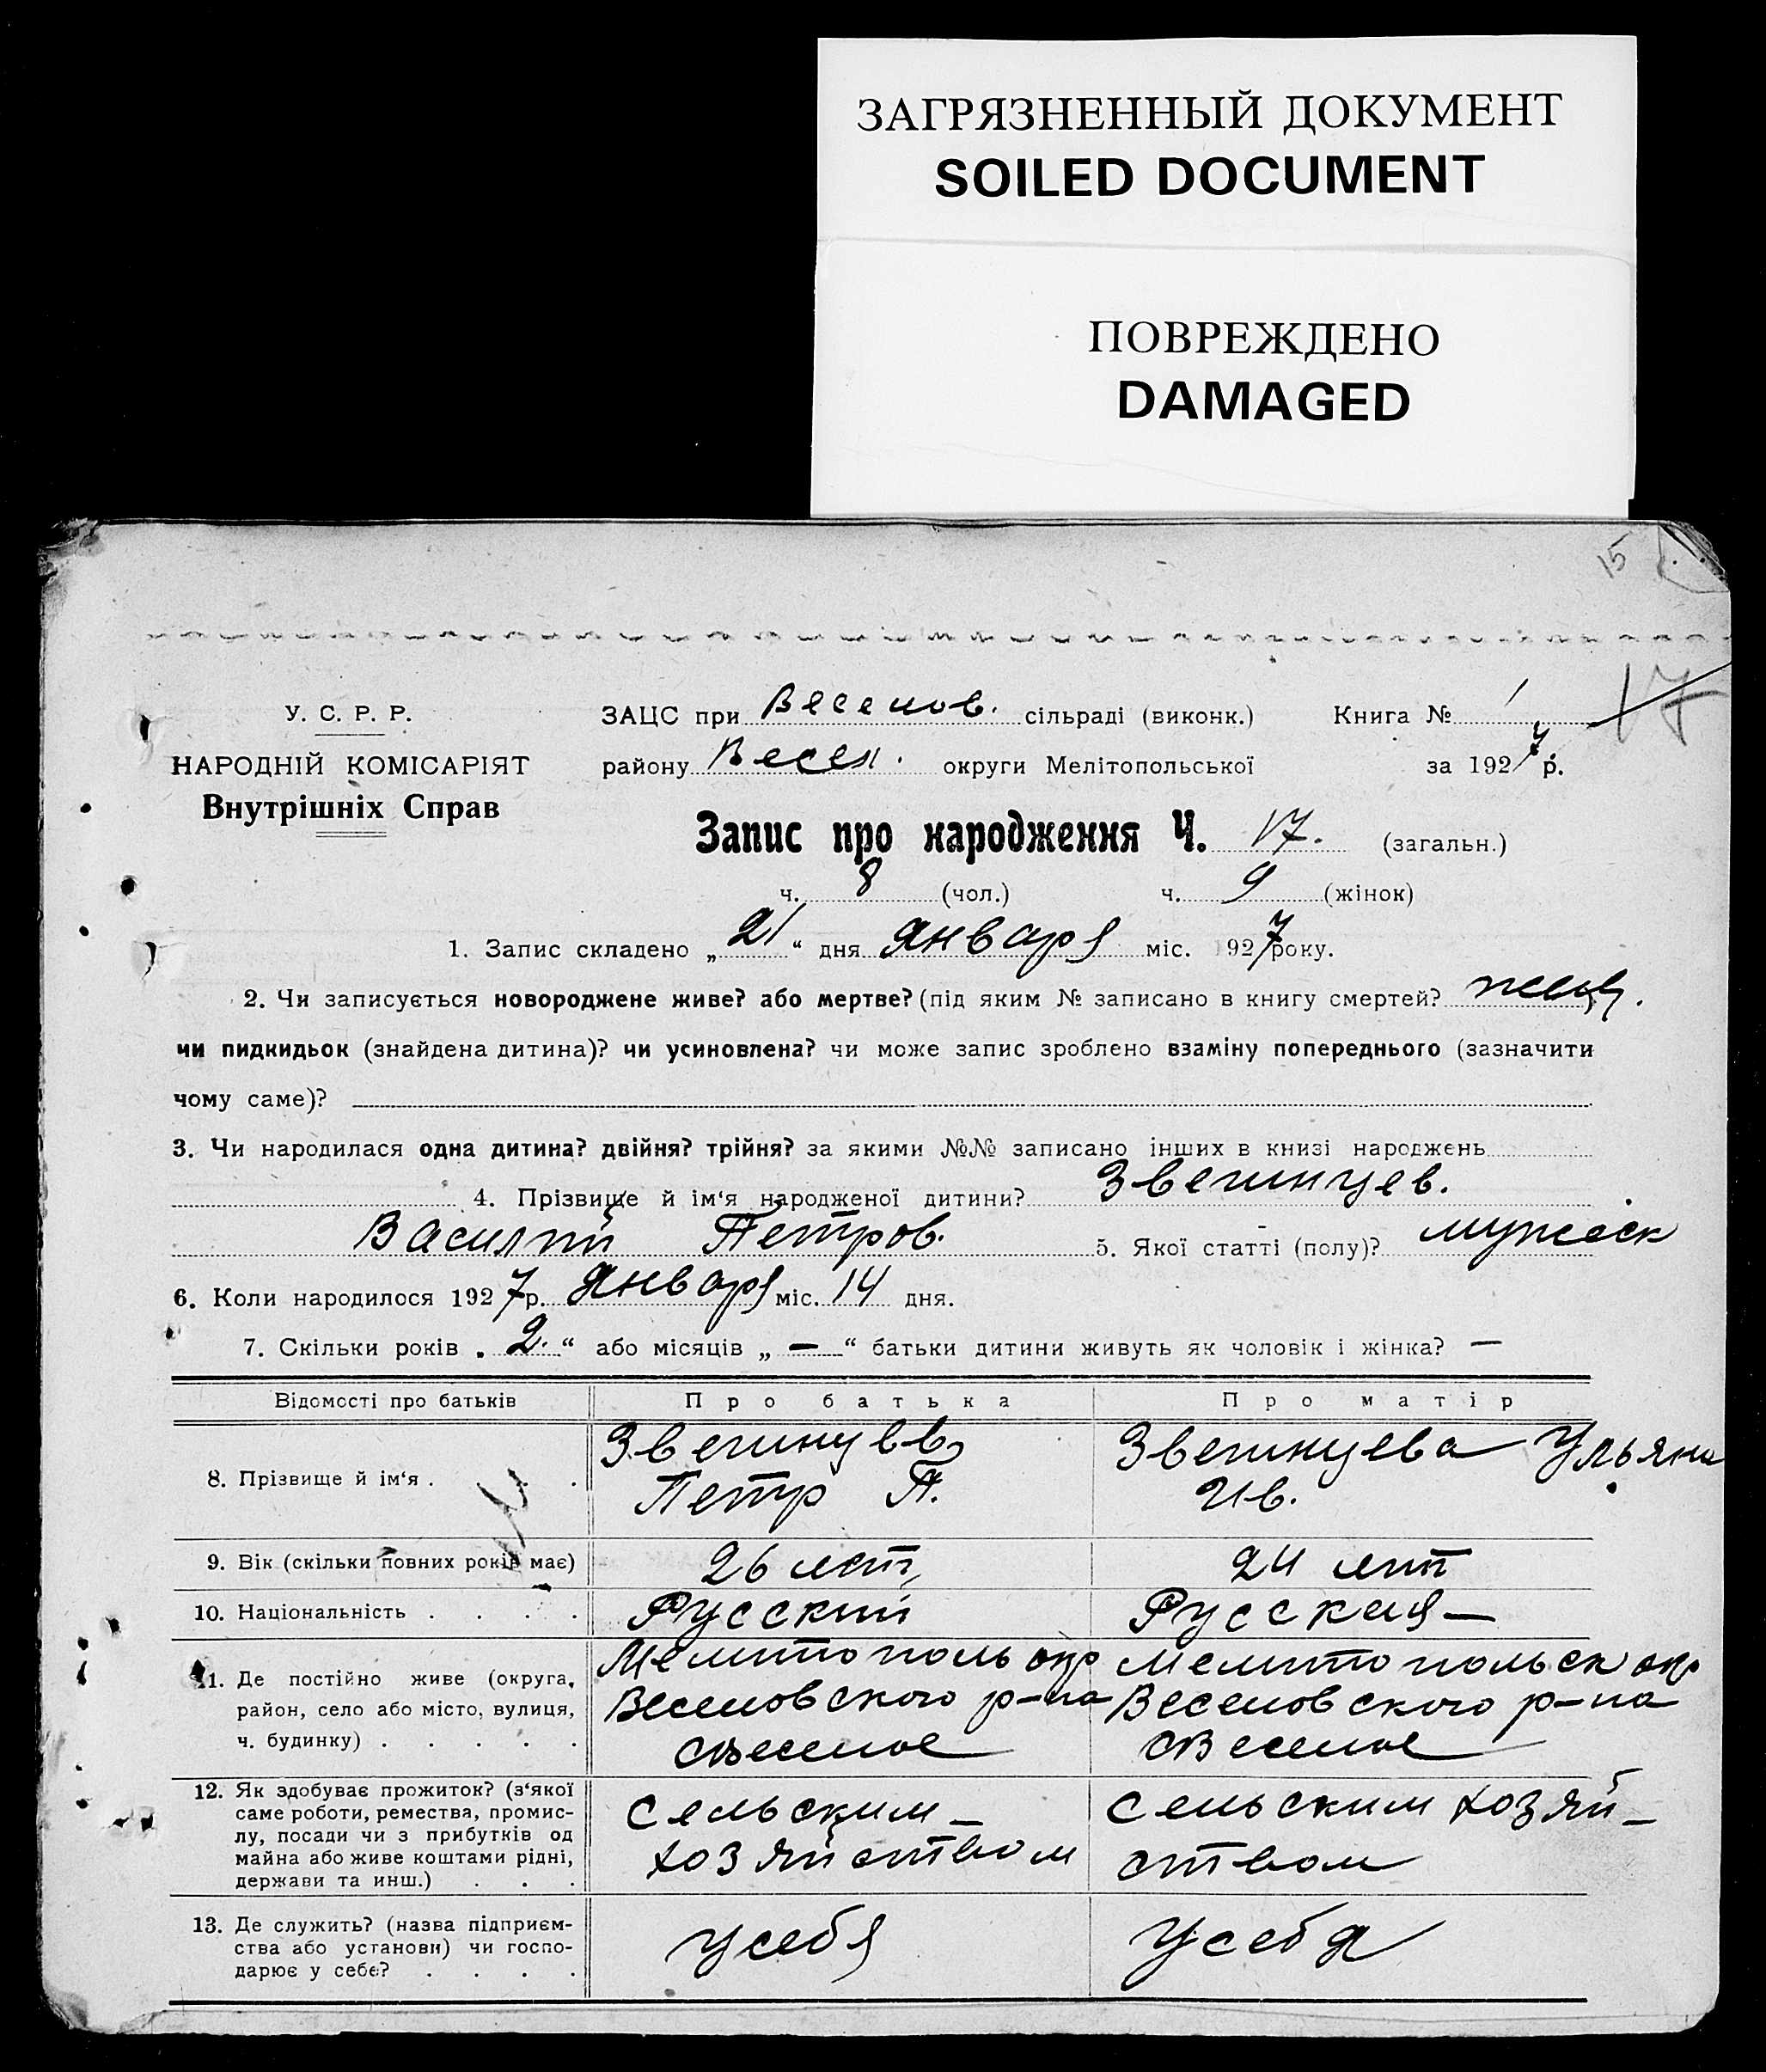 ЗАГРЯЗНЕННЫЙ ДОКУМЕНТ
SOILED DOCUMENT
ПОВРЕЖДЕНО
DAMAGED
15
17
У. С. Р. Р.
НАРОДНІЙ КОМІСАРІЯТ
Внутрішніх Справ
ЗАЦС при Веселов. сільраді (виконк.) Книга № 1
району Весел. округи Мелітопольської за 1927 р.
Запис про народження Ч. 17. (загальн.)
ч. 8 (чол.) ч. 9 (жінок)
1. Запис складено „ 21 “ дня Января міс. 1927 року.
2. Чи записується новороджене живе? або мертве? (під яким № записано в книгу смертей?
чи пидкидьок (знайдена дитина)? чи усиновлена? чи може запис зроблено взаміну попереднього (зазначити
чому саме)?
3. Чи народилася одна дитина? двійня? трійня? за якими №№ записано інших в книзі народжень
4. Прізвище й ім‘я народженої дитини? Звегинцев.
Василий Петров. 5. Якої статті (полу)? мужеск
6. Коли народилося 1927 р. Января міс. 14 дня.
7. Скільки років „ 2. “ або місяців „ — “ батьки дитини живуть як чоловік і жінка? —
Відомості про батьків Про батька Про матір
8. Прізвище й ім‘я . . . Звегинцев Петр П. Звегинцева Ульяна Ив.
9. Вік (скільки повних років має) 26 лет 24 лет
10. Національність . . . . Русский Русская —
11. Де постійно живе (округа, Мелитополь окр Мелитопольск окр
район, село або місто, вулиця, Веселовского р-на Веселовского р-на
ч. будинку) . . . . . с Веселое с Веселое
12. Як здобуває прожиток? (з‘якої
саме роботи, ремества, промис- Сельским — Сельским хозяй-
лу, посади чи з прибутків од
майна або живе коштами рідні, хозяйством ством
держави та инш.) . . .
13. Де служить? (назва підприєм-
ства або установи) чи госпо- у себя у себя
дарює у себе? . . . .